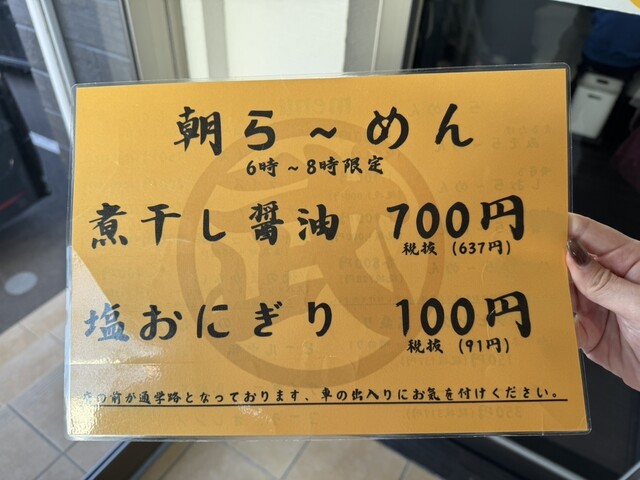 朝ら～めん
6時～8時限定
煮干し醤油 700円
税抜 (637円)
塩おにぎり 100円
税抜 (91円)
の前が通学路となっております、車の出入りにお気を付けください。
武